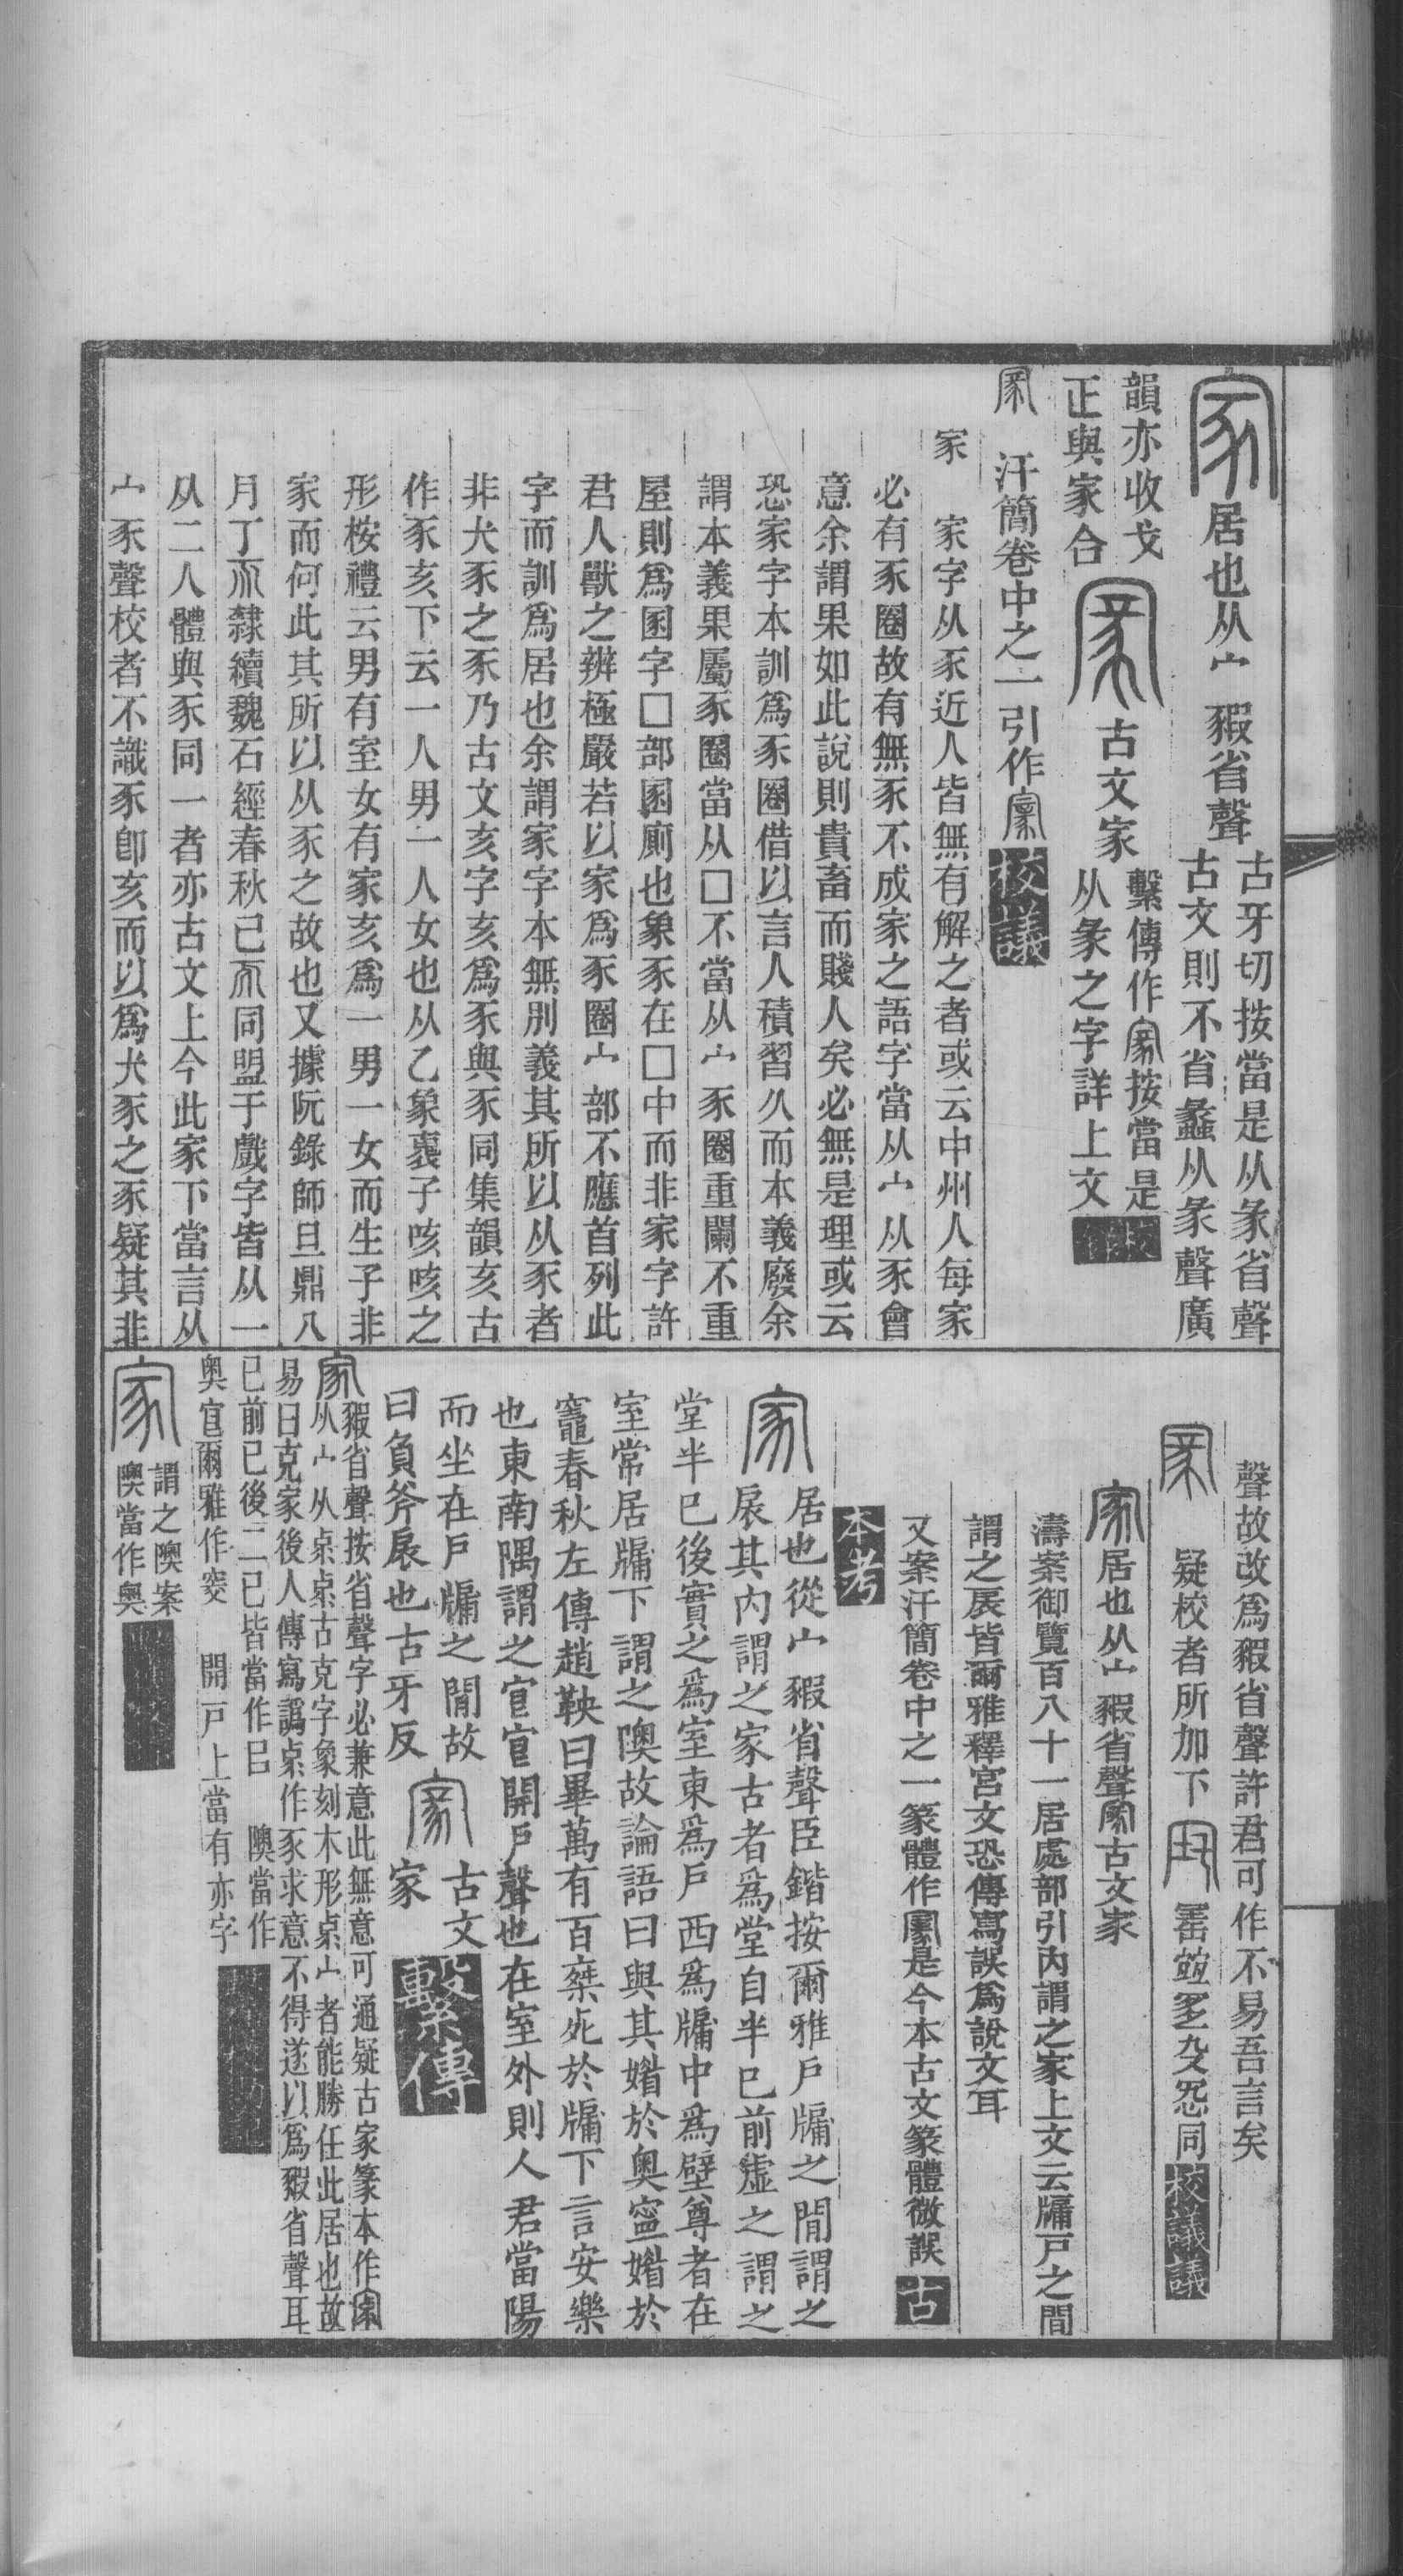 家居也从宀豭省聲
古牙切按當是从彖省聲
古文則不省蠡从彖聲廣
韻亦收戈
正與家合
古文家
繫傳作按當是
从彖之字詳上文
汗簡卷中之一引作校議
家　家字从豕近人皆無有解之者或云中州人每家
必有豕圈故有無豕不成家之語字當从宀从豕會
意余謂果如此說則貴畜而賤人矣必無是理或云
恐家字本訓爲豕圈借以言人積習久而本義廢余
謂本義果屬豕圈當从囗不當从宀豕圈重闌不重
屋則爲圂字囗部圂廁也象豕在囗中而非家字許
君人獸之辨極嚴若以家爲豕圈宀部不應首列此
字而訓爲居也余謂家字本無別義其所以从豕者
非犬豕之豕乃古文亥字亥爲豕與豕同集韻亥古
作豕亥下云一人男一人女也从乙象褱子咳咳之
形桉禮云男有室女有家亥爲一男一女而生子非
家而何此其所以从豕之故也又據阮錄師旦鼎八
月丁隸續魏石經春秋己同盟于戲字皆从一
从二人體與豕同一者亦古文上今此家下當言从
宀豕聲校者不識豕卽亥而以爲犬豕之豕疑其非
聲故改爲豭省聲許君可作不易吾言矣
疑校者所加下同校議議
家居也从宀豭省聲古文家
濤案御覽百八十一居處部引內謂之家上文云牖戸之間
謂之扆皆爾雅釋宮文恐傳寫誤爲說文耳
又案汗簡卷中之一篆體作是今本古文篆體微誤古
本考
家居也從宀豭省聲臣鍇按爾雅戸牖之閒謂之
扆其內謂之家古者爲堂自半已前虛之謂之
堂半已後實之爲室東爲戸西爲牖中爲壁尊者在
室常居牖下謂之隩故論語曰與其媚於奧寧媚於
竈春秋左傳趙鞅曰畢萬有百椉死於牖下言安樂
也東南隅謂之㝔㝔開戸聲也在室外則人君當陽
而坐在戸牖之閒故
曰負斧扆也古牙反
古文
家
繫傳
豭省聲按省聲字必兼意此無意可通疑古家篆本作
家从宀从㭒㭒古克字象刻木形㭒宀者能勝任此居也故
易曰克家後人傳寫譌㭒作豕求意不得遂以爲豭省聲耳
已前已後二已皆當作㠯　隩當作
奧㝔爾雅作窔　開戸上當有亦字
家
謂之隩案
隩當作奧